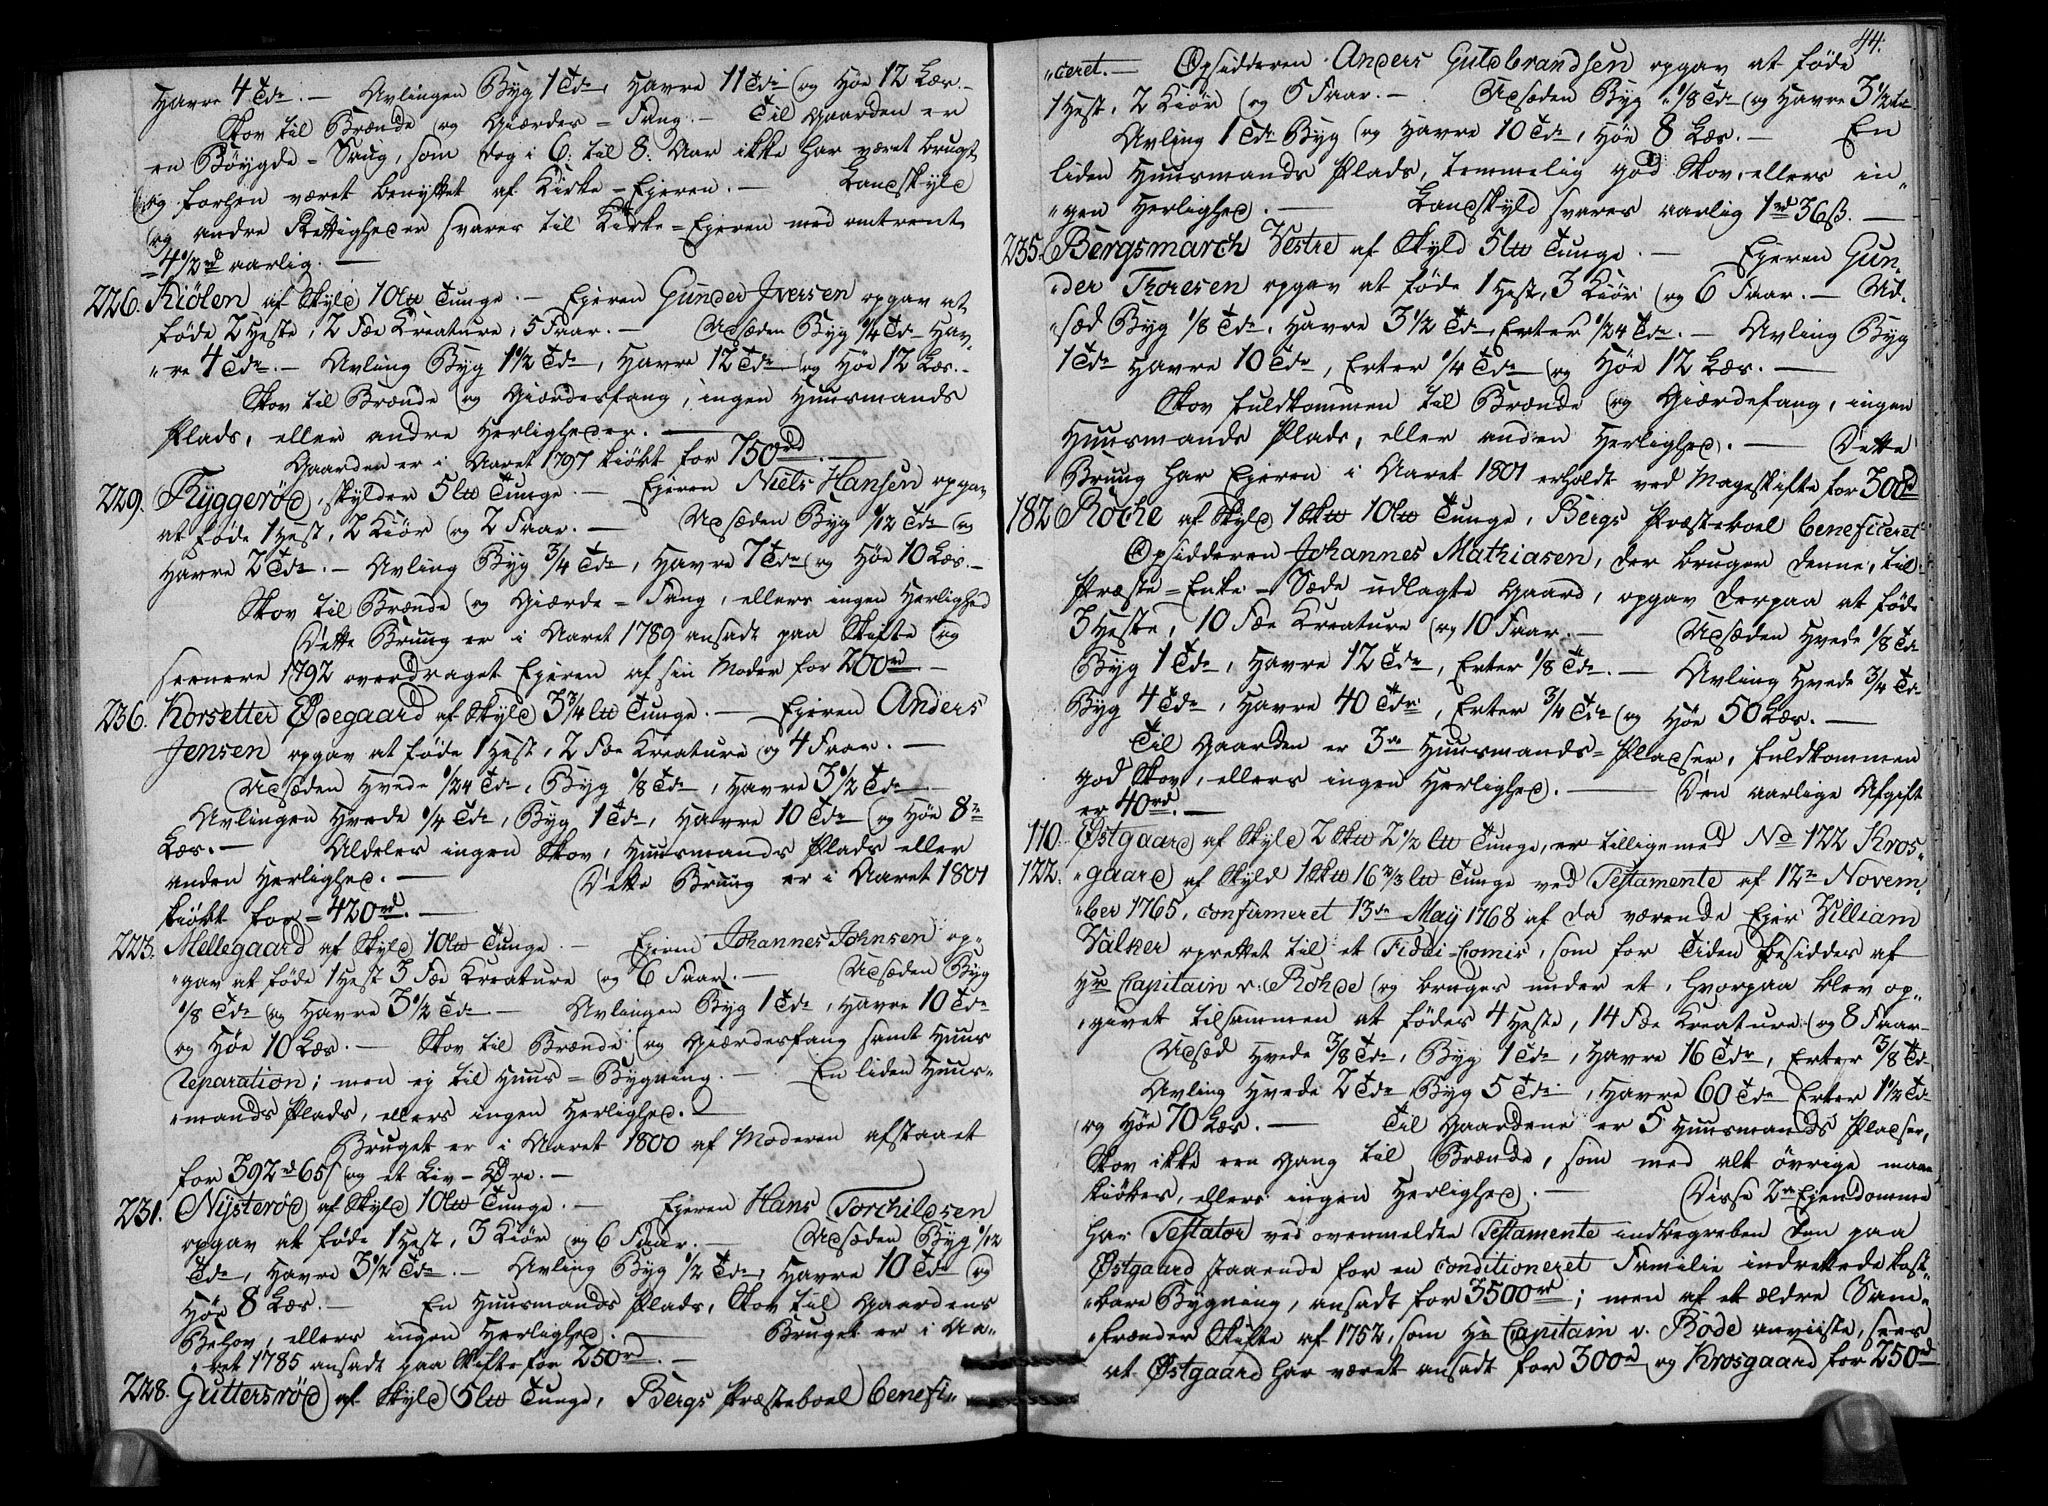 Havre 4 Tdr. — Avlingen Byg 1 Tde, Havre 11 Tdr og Høe 12 Læs. —
Skov til Brænde og Giærdes-Fang. — Til Gaarden er
en Bøygde-Saug, som dog i 6: til 8: Aar ikke har været brugt
og forhen været benyttet af Kirke-Ejeren. — Landskyld
og andre Rettigheder svares til Kirke-Ejeren med omtrent
4 1/2 rd aarlig. —
226. Kiølen af Skyld 10 l℔ Tunge. — Ejeren Gunder Iversen opgav at
føde 2 Heste, 2 Fæe Kreature, 5 Faar. — Udsæden Byg 1/4 Td. Hav-
„re 4 Tdr. — Avling Byg 1 1/2 Tde, Havre 12 Tdr og Høe 12 Læs. -
Skov til Brænde og Giærdesfang, ingen Huusmands
Plads, eller andre Herligheder. —
Gaarden er i Aaret 1797 kiøbt for 750 rd. —
229. Ryggerød, skylder 5 l℔ Tunge. — Ejeren Niels Hansen opgav
at føde 1 Hest, 2 Kiör og 2 Faar. — Udsæden Byg 1/12 Tde og
Havre 2 Tdr. — Avling Byg 3/4 Tde, Havre 7 Tdr og Høe 10 Læs. —
Skov til Brænde og Giærde-Fang, ellers ingen Herlighed
Dette Bruug er i Aaret 1789 ansadt paa Skifte og
seenere 1792 overdraget Ejeren af sin Moder for 200 rd —
236. Korsetter Ødegaard af Skyld 3 3/4 l℔ Tunge. — Ejeren Anders
Jensen opgav at føde 1 Hest, 2 Fæe Kreature og 4 Faar. —
Udsæden Hvede 1/24 Tde, Byg 1/8 Tde, Havre 3 1/2 Tde
Avlingen Hvede 1/4 Tde, Byg 1 Tde, Havre 10 Tdr og Høe 8te
Læs. — Aldeles ingen Skov, Huusmands Plads eller
anden Herlighed. — Dette Bruug er i Aaret 1801
kiøbt for 420 rd. —
223. Mellegaard af Skyld 10 l℔ Tunge. — Ejeren Johannes Johnsen op-
„gav at føde 1 Hest 3 Fæe Kreature og 6 Faar. — Udsæden Byg
1/8 Tde og Havre 3 1/2 Tde — Avlingen Byg 1 Tde, Havre 10 Tdr
og Høe 10 Læs. — Skov til Brænde og Giærdesfang samt Huus
Reparation; men ej til Huus-Bygning. — En liden Huus-
„mands Plads, ellers ingen Herlighed. —
Bruget er i Aaret 1800 af Moderen afstaaet
for 392 rd 65 s og et Liv-Øre. —
231. Nysterød af Skyld 10 l℔ Tunge. — Ejeren Hans Torchildsen
opgav at føde 1 Hest, 3 Kiör og 6 Faar. — Udsæden Byg 1/12
Tde, Havre 3 1/2 Tde. — Avling Byg 1/2 Tde, Havre 10 Tdr og
Høe 8 Læs. — En Huusmands Plads, Skov til Gaardens
Behov, ellers ingen Herlighed. — Bruget er i Aa-
„ret 1785 ansadt paa Skifte for 250 rd. —
228. Guttersrød af Skyld 5 l℔ Tunge, Bergs Præsteboel benefi-
44.
„ceret. — Opsidderen Anders Guldbrandsen opgav at føde
1 Hest, 2 Kiör og 5 Faar. — Udsæden Byg 1/8 Tde og Havre 3 1/2 Td
Avling 1 Tde Byg og Havre 10 Tdr, Høe 8 Læs. — En
liden Huusmands Plads, temmelig god Skov, ellers in-
„gen Herlighed. — Landskyld svares aarlig 1 rd 36 ß. —
235. Bergsmarch Vestre af Skyld 5 l℔ Tunge. — Ejeren Gun-
„der Thoresen opgav at føde 1 Hest, 3 Kiör og 6 Faar. — Ud-
„sæd Byg 1/8 Tde, Havre 3 1/2 Tde, Erter 1/24 Tde. — Avling Byg
1 Tde Havre 10 Tdr, Erter 1/4 Tde og Høe 12 Læs. —
Skov fuldkommen til Brænde og Giærdefang, ingen
Huusmands Plads, eller anden Herlighed. — Dette
Bruug har Ejeren i Aaret 1801 erholdt ved Mageskifte for 300 rd
182 Röche af Skyld 1 Sk℔ 10 l℔ Tunge, Bergs Præsteboel beneficeret
Opsidderen Johannes Mathiasen, der bruger denne, til
Præste-Enke-Sæde udlagte Gaard, opgav derpaa at føde
3 Heste, 10 Fæe Kreature og 10 Faar. — Udsæden Hvede 1/8 Td
Byg 1 Tde, Havre 12 Tdr, Erter 1/8 Tde. — Avling Hvede 3/4 Td
Byg 4 Tdr, Havre 40 Tdr, Erter 3/4 Tde og Høe 50 Læs. —
Til Gaarden er 3de Huusmands-Pladser, fuldkommen
god Skov, ellers ingen Herlighed. — Den aarlige Afgift
er 40 rd. —
110. Østgaard af Skyld 2 Sk℔ 2 1/2 l℔ Tunge, er tilligemed No 122 Kros-
122. „gaard af Skyld 1 Sk℔ 16 2/3 l℔ Tunge ved Testamente af 12te Novem-
„ber 1765, confirmeret 13de May 1768 af da værende Ejer William
Valker oprettet til et Fidei-Comis, som for Tiden besiddes af
Hr Capitain v. Rohde og bruges under et, hvorpaa blev op-
„givet tilsammen at fødes 4 Heste, 14 Fæe Kreature og 8 Faar —
Udsæd Hvede 3/8 Tde, Byg 1 Tde, Havre 16 Tdr, Erter 3/8 Td.
Avling Hvede 2 Tdr Byg 5 Tdr, Havre 60 Tdr Erter 1 1/2 Td
og Høe 70 Læs. — Til Gaardene er 5 Huusmands Pladser,
Skov ikke een Gang til Brænde, som med alt övrige maae
kiøbes, ellers ingen Herlighed. — Disse 2de Ejendomme
har Testator ved ovenmeldte Testamente indbegreben den paa
Østgaard staaende for en conditioneret Familie indrettede kost-
„bare Bygning, ansadt for 3500 rd; men af et ældre Sam-
„frænder Skifte af 1752, som Hr Capitain v. Rode anviiste, sees
at Østgaard har været ansadt for 300 rd og Krosgaard for 250 rd